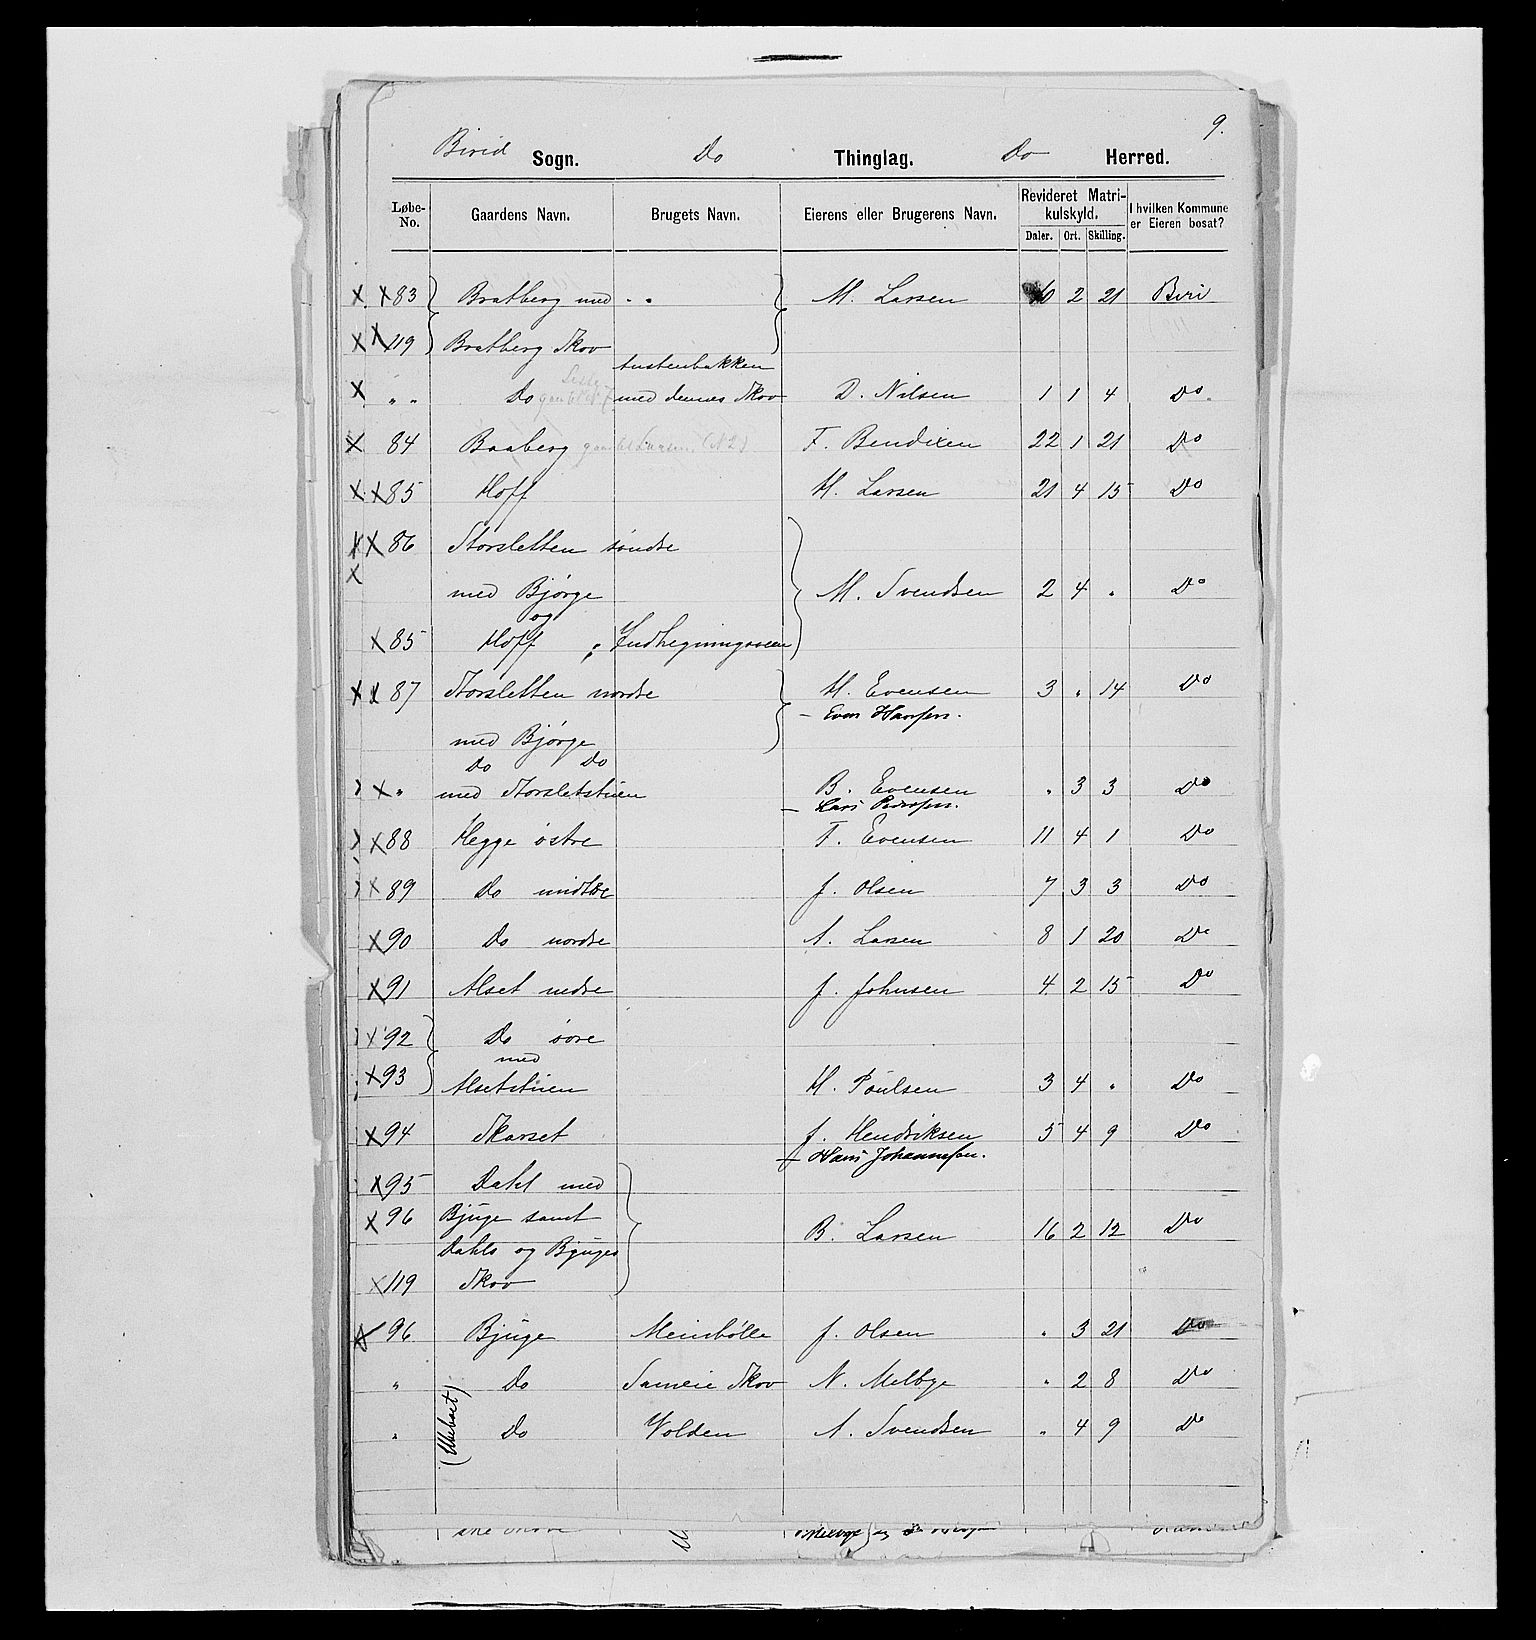 9.
Birid Sogn. Do Thinglag. Do Herred.
Løbe-No. Gaardens Navn. Brugets Navn. Eierens eller Brugerens Navn. Revideret Matrikulskyld. Daler. Ort. Skilling. I hvilken Kommune er Eieren bosat?
X X 83 Bratberg med " " M. Larsen 6 2 21 Biri
X X 119 Bratberg Skov
Austenbakken
X " " Do med dennes Skov D. Nilsen 1 1 4 Do
X 84 Baaberg F. Bendixen 22 1 21 Do
X X 85 Hoff H. Larsen 21 4 15 Do
X X 86 Storsletten søndre
X med Bjørge M. Svendsen 2 4 " Do
og
X 85 Hoff " Indhegningsveen
X X 87 Storsletten nordre H. Evensen 3 " 14 Do
- Even Hansen.
med Bjørge
Do Do
X " med Storsletstuen B. Evensen " 3 3 Do
- Lars Pedersen.
X 88 Hegge østre F. Evensen 11 4 1 Do
X 89 Do midtre J. Olsen 7 3 3 Do
X 90 Do nordre A. Larsen 8 1 20 Do
X 91 Alset nedre J. Johnsen 4 2 15 Do
X 92 Do øvre
med
X 93 Alsetstuen H. Poulsen 3 4 " Do
X 94 Skarset J. Hendriksen 5 4 9 Do
Hans Johannesen.
X 95 Dahl med
X 96 Bjuge samt B. Larsen 16 2 12 Do
Dahls og Bjuges
X 119 Skov
X 96 Bjuge Meinbølle J. Olsen " 3 21 Do
" Do Sameie Skov N. Melbye " 2 8 Do
" Do Volden A. Svendsen " 4 9 Do